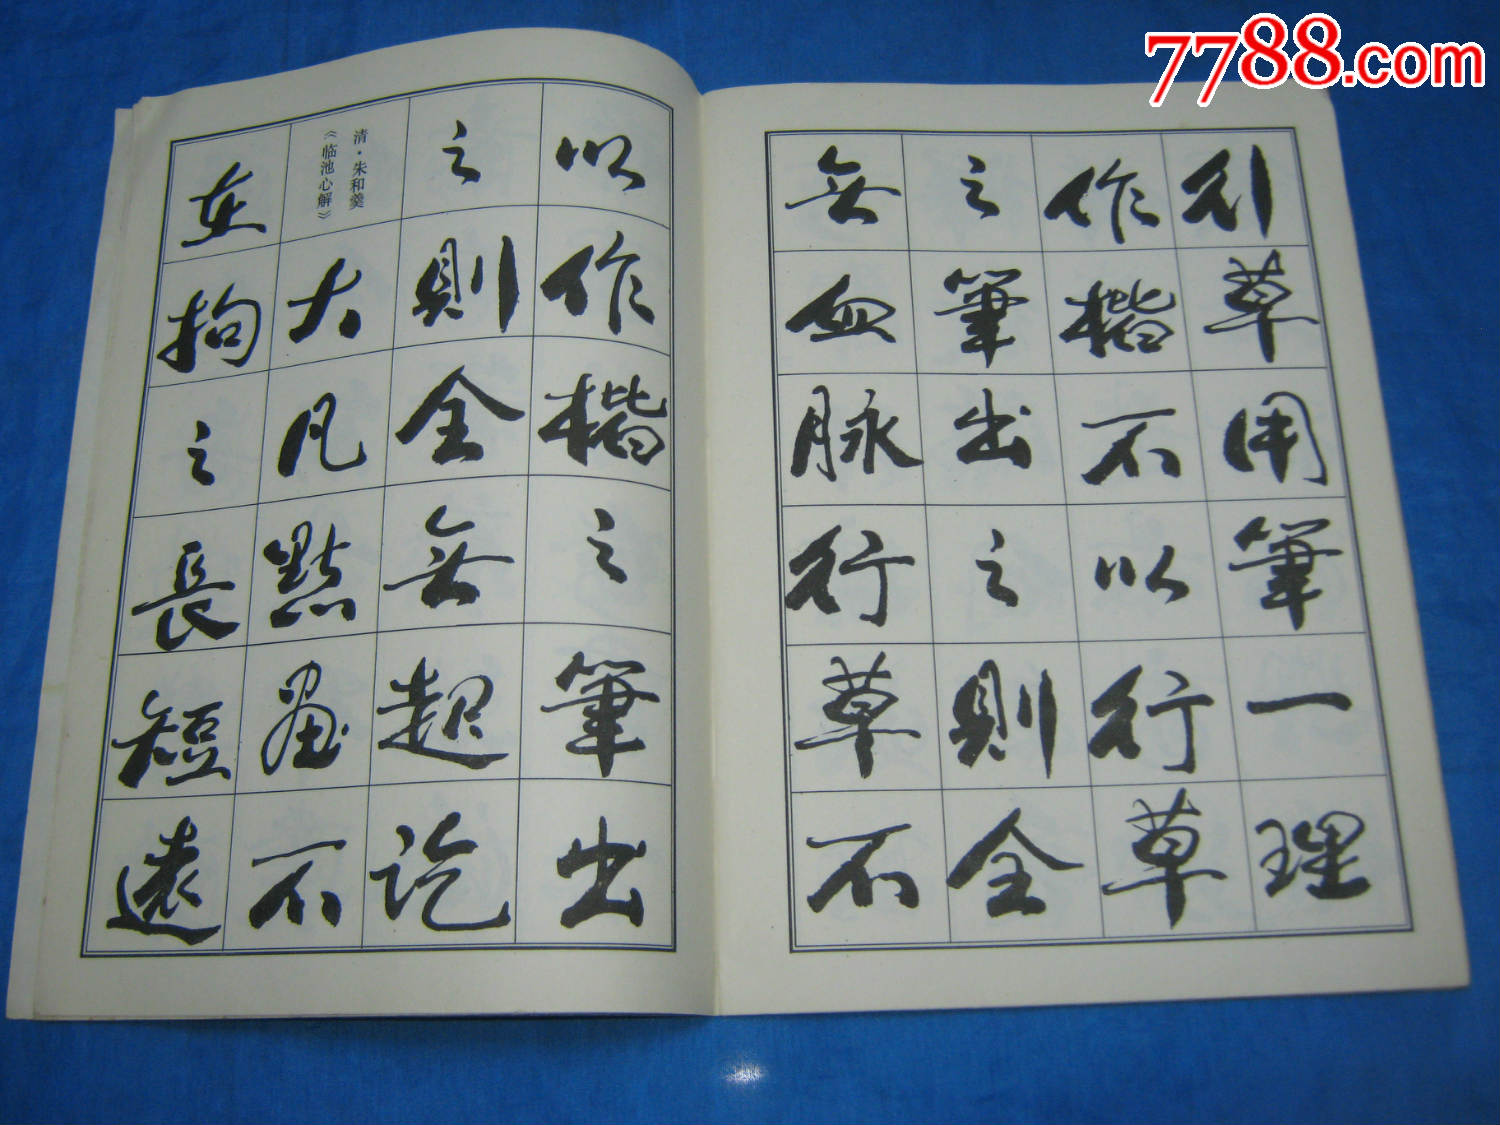 行草用筆一理
作楷不以行草
之筆出之則全
無血脉行草不
以作楷之筆出
之則全無超訖
清·朱和羹
《临池心解》
大凡點畫不
在拘之長短遠
7788.com